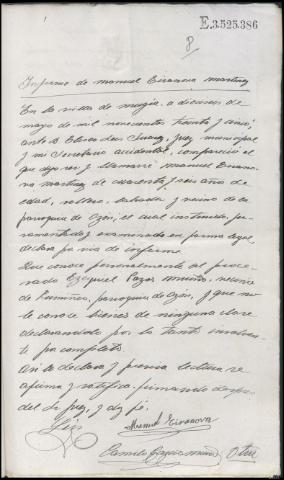 E.3.525.386
8
Informe de Manuel Tiranova Martinez
En la villa de Mugia, a dieciseis de
mayo de mil novecientos treinta y seis;
ante D. Eliseo Juez municipal
y mi Secretario accidental, compareció el
que dijo ser y llamarse Manuel Tirano-
va Martinez de cuarenta y seis años de
edad, soltero, labrador y vecino de la
parroquia de Ozón, el cual instruido, ju-
ramentado y examinado en forma legal
declara por via de informe.
Que conoce personalmente al proce-
sado Ezequiel Pazos vecino
de parroquia de Ozón, y que no
le conoce bienes de ninguna clase
declarandolo por lo tanto insolven-
te por completo.
Asi lo declara y previa lectura se
afirma y ratifica firmando despues
del Sr. Juez, y doy fé.
Manuel Tiranova
Camilo